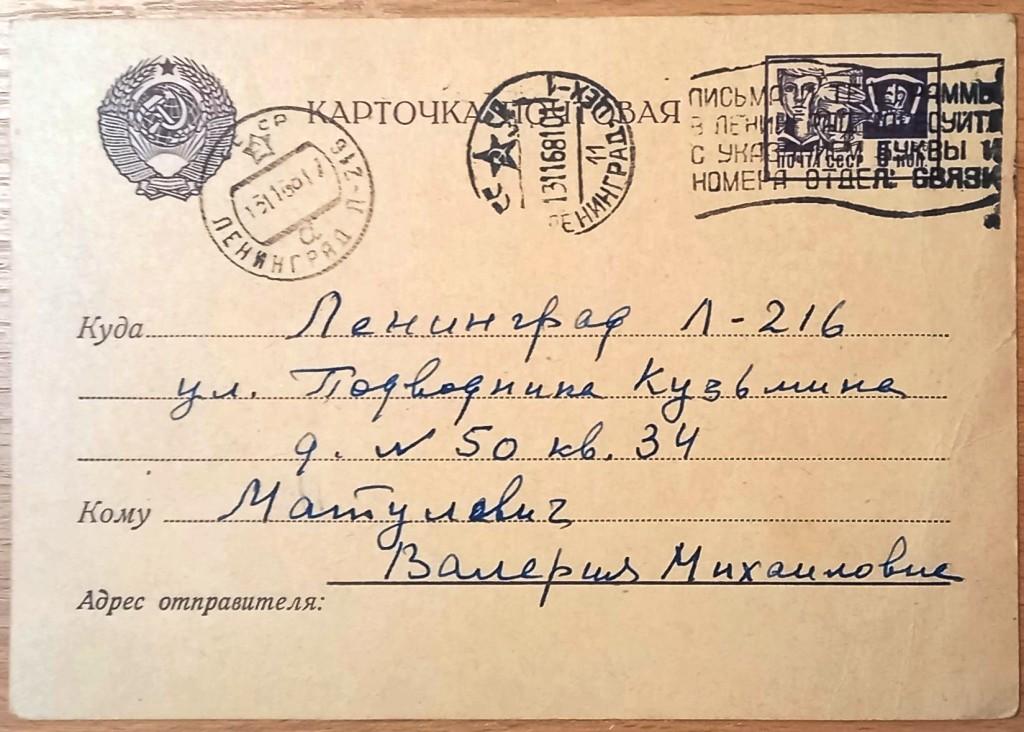 КАРТОЧКА ПОЧТОВАЯ
СССР
ЛЕНИНГРАД Л-216
а
СССР
131168101
11
ЛЕНИНГРАД ЦЕХ-1
ПИСЬМА И ТЕЛЕГРАММЫ
В ЛЕНИНГРАД АДРЕСУЙТЕ
С УКАЗАНИЕМ БУКВЫ И
НОМЕРА ОТДЕЛ. СВЯЗИ
ПОЧТА СССР 3 КОП.
Куда Ленинград Л-216
ул. Подводника Кузьмина
д. N 50 кв. 34
Кому Матулевич
Валерия Михаиловне
Адрес отправителя: